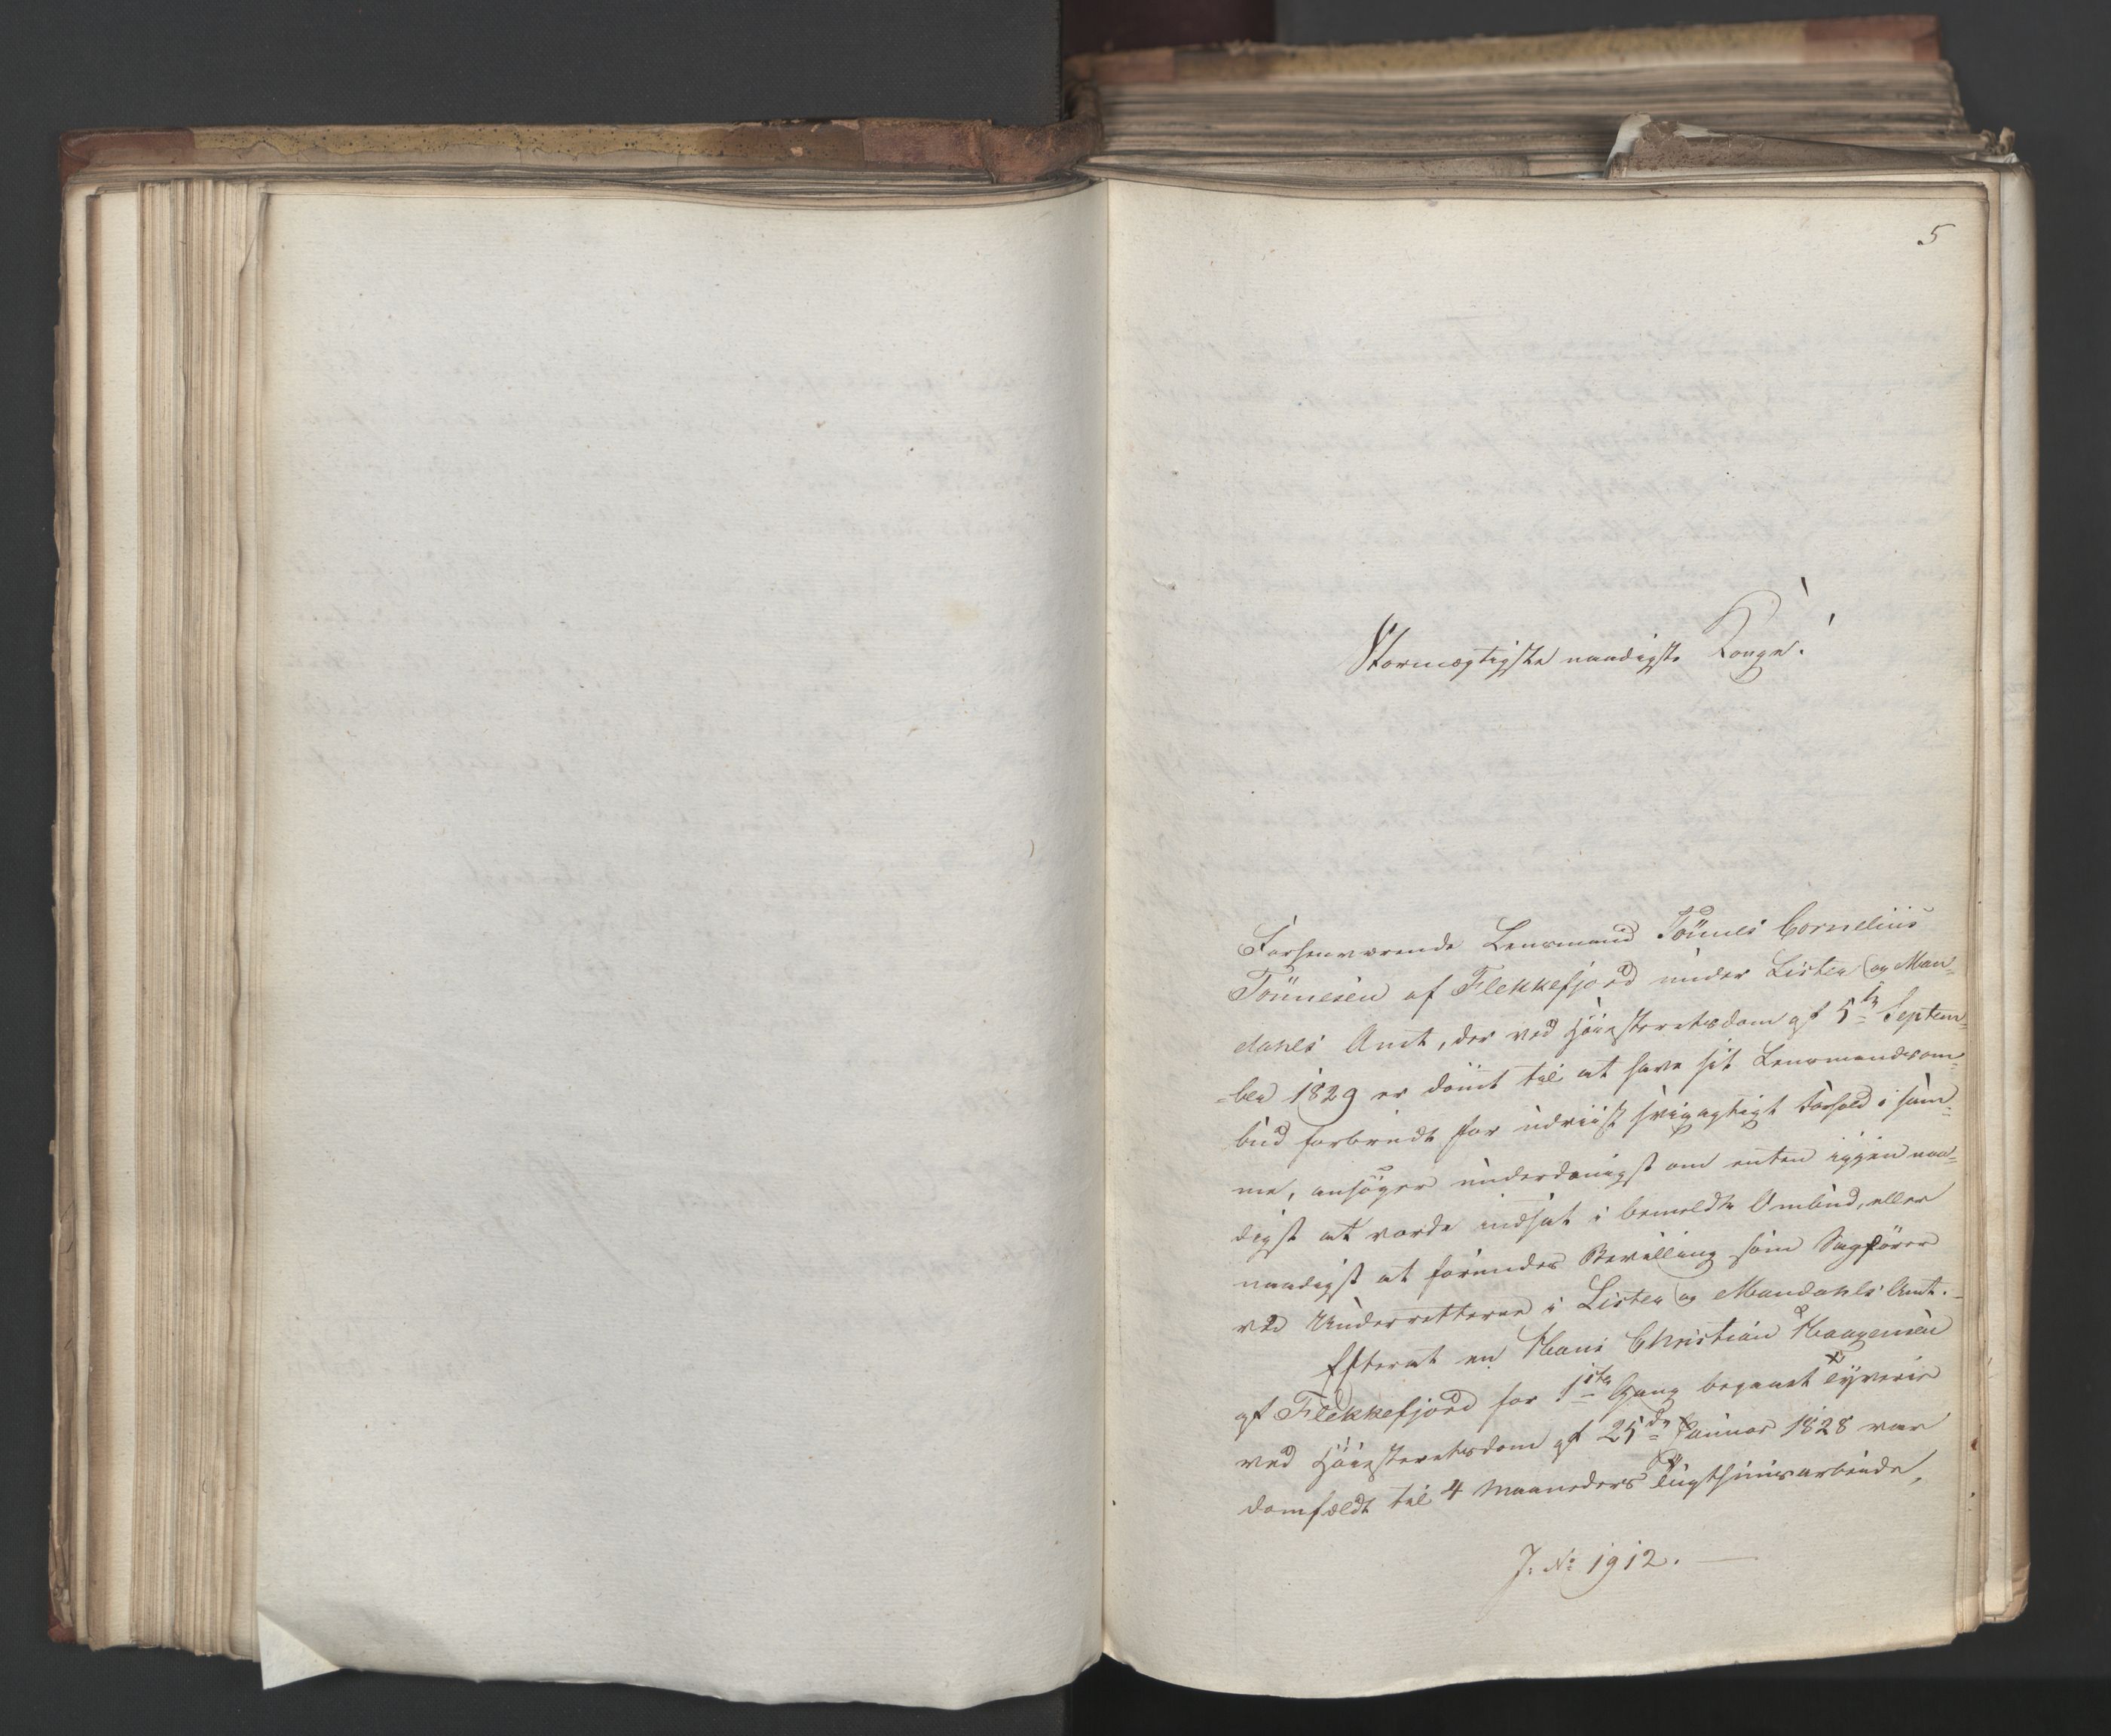 5
Stormægtigste naadigste Konge!
Forhenværende Lensmand Tönnes Cornelius
Tönnesen af Flekkefjord under Lister og Man=
dahls Amt, der ved Höiesteretsdom af 5te Septem=
=ber 1829 er dömt til at have sit Lensmandsom=
bud forbrudt for udviist svigagtigt Forhold i sam=
me, ansöger underdanigst om enten iggjen naa=
digst at vorde indsat i bemeldte Ombud, eller
naadigst at forundes Bevilling som Sagförer
ved Underretterne i Lister og Mandahls Amt.
Efterat en Hans Christian Haagensen
af Flekkefjord for 1ste Gang begaaet Tyverie
ved Höiesteretsdom af 25de Januar 1828 var
domfældt til 4 Maaneders Tugthuusarbeide,
J. No 1912.